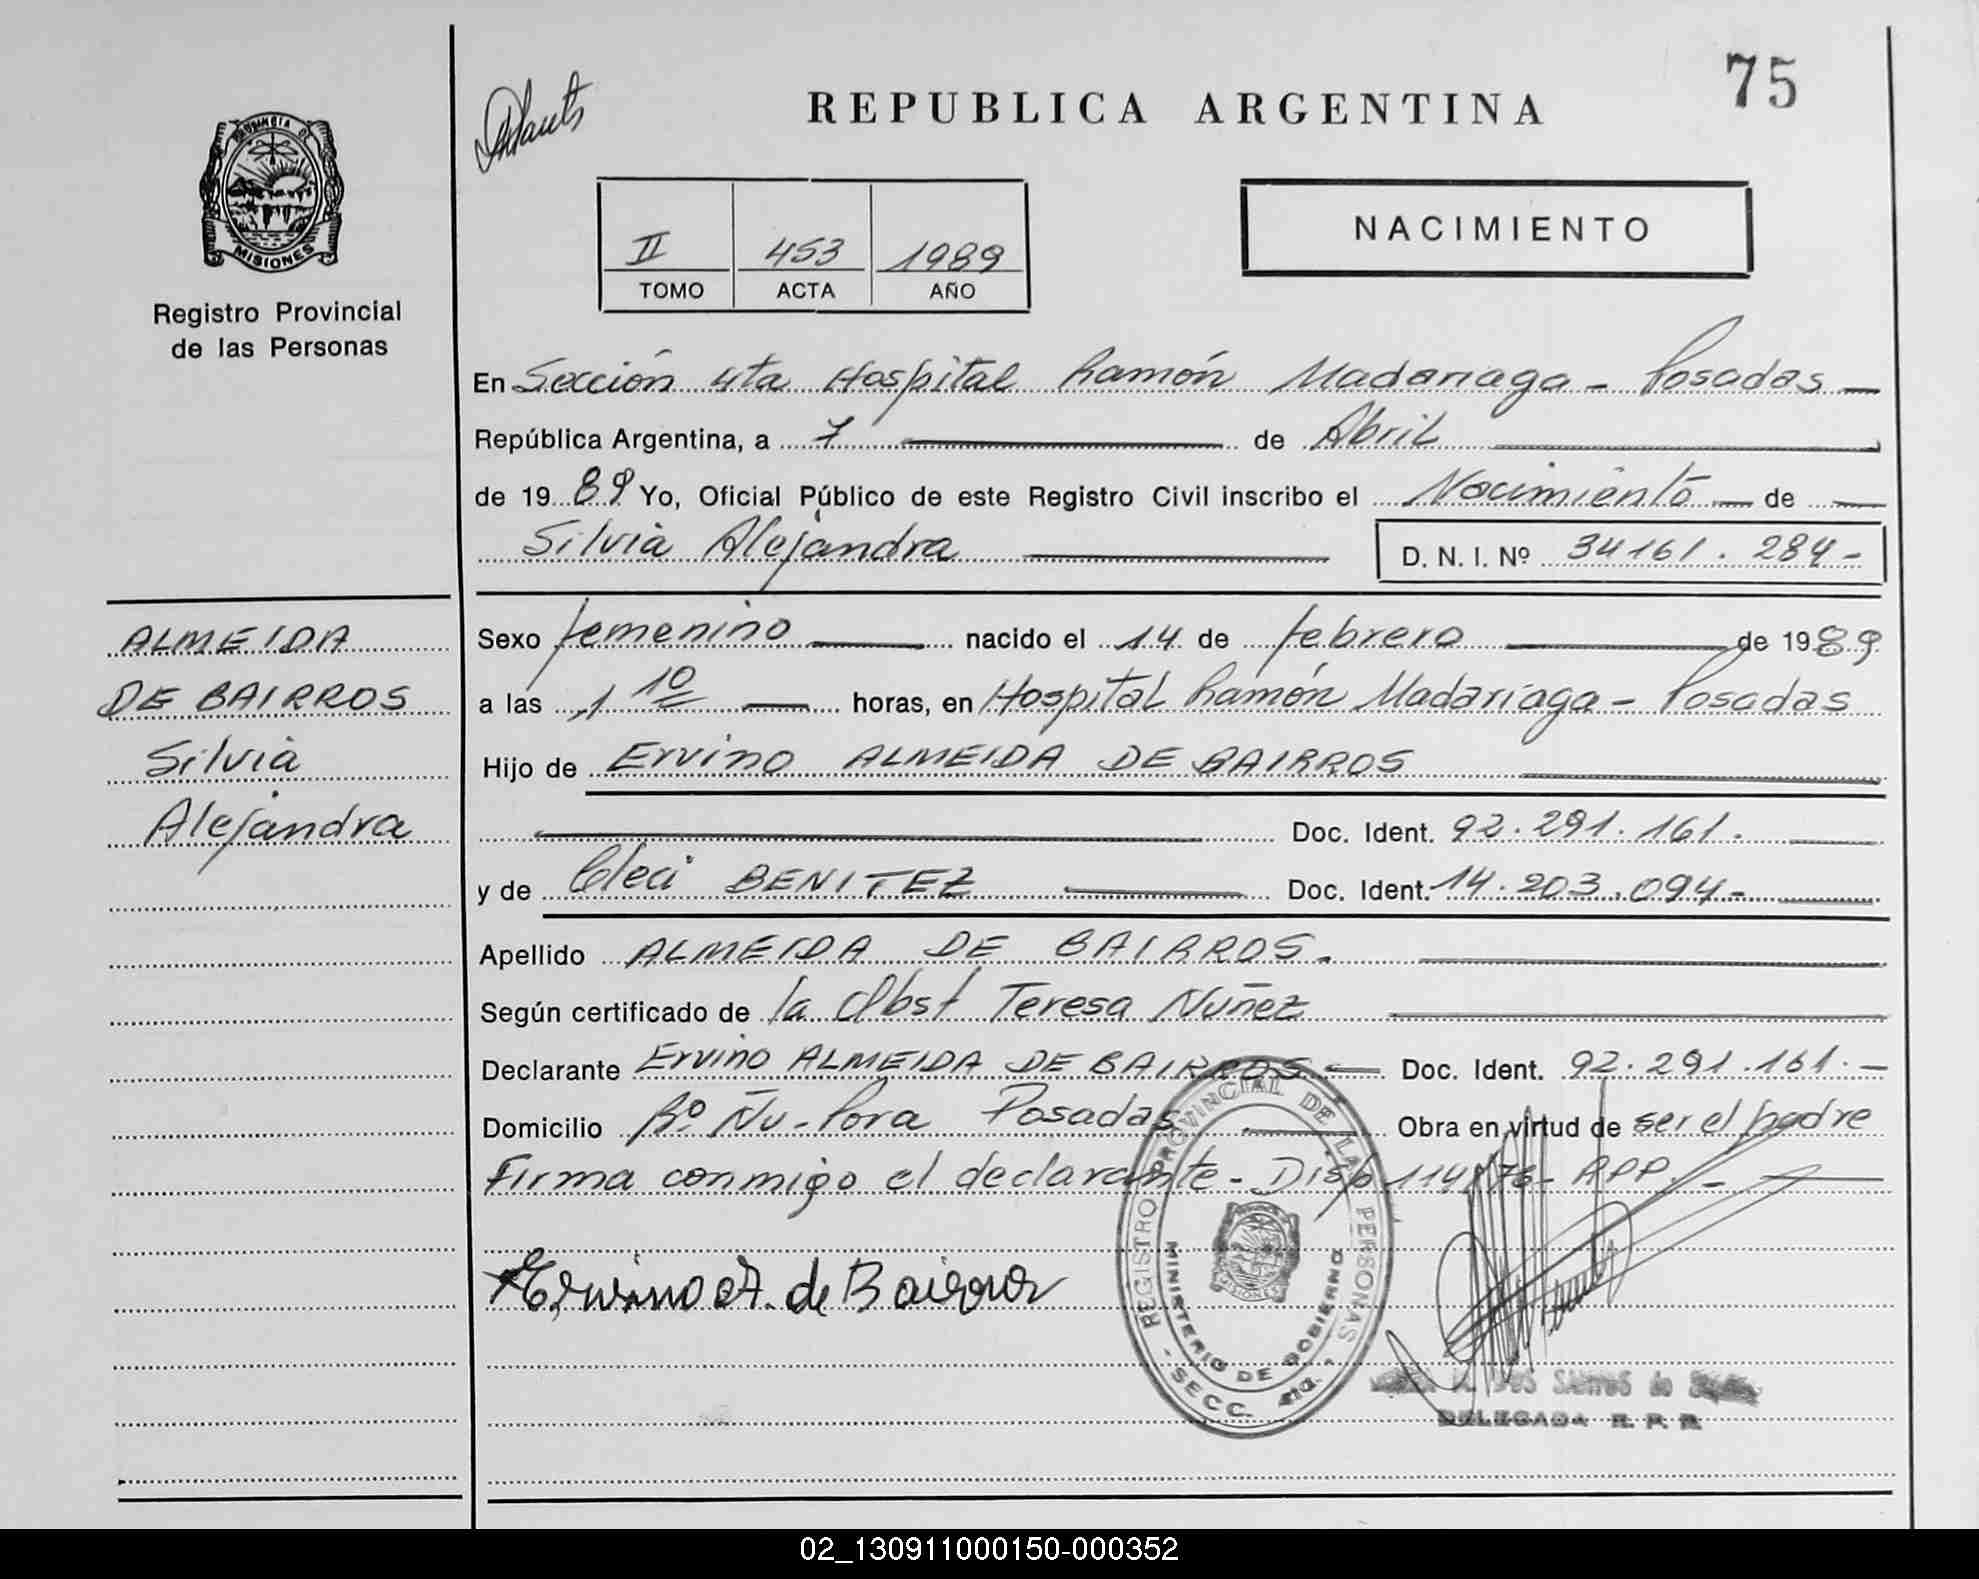 75
REPUBLICA ARGENTINA
PROVINCIA DE
MISIONES
Registro Provincial
de las Personas
II 453 1989
TOMO ACTA AÑO
NACIMIENTO
En Sección 4ta Hospital Ramón Madariaga - Posadas
República Argentina, a 7 de Abril
de 1989 Yo, Oficial Público de este Registro Civil inscribo el Nacimiento de
Silvia Alejandra
D. N. I. Nº 34161.284-
ALMEIDA
DE BAIRROS
Silvia
Alejandra
Sexo femenino nacido el 14 de febrero de 1989
a las 1 10 horas, en Hospital Ramón Madariaga - Posadas
Hijo de Ervino ALMEIDA DE BAIRROS
Doc. Ident. 92.291.161.
y de Cleci BENITEZ Doc. Ident. 14.203.094-
Apellido ALMEIDA DE BAIRROS.
Según certificado de la Obst Teresa Nuñez
Declarante Ervino ALMEIDA DE BAIRROS Doc. Ident. 92.291.161.
Domicilio Bº Ñu-Pora Posadas Obra en virtud de ser el padre
Firma conmigo el declarante - Disp 114/76 - APP. -
Ervino A. de Bairros
REGISTRO PROVINCIAL DE LAS PERSONAS
MINISTERIO DE GOBIERNO
- SECC. 4ta. -
DOS SANTOS de
DELEGADA R. P. P.
02_130911000150-000352